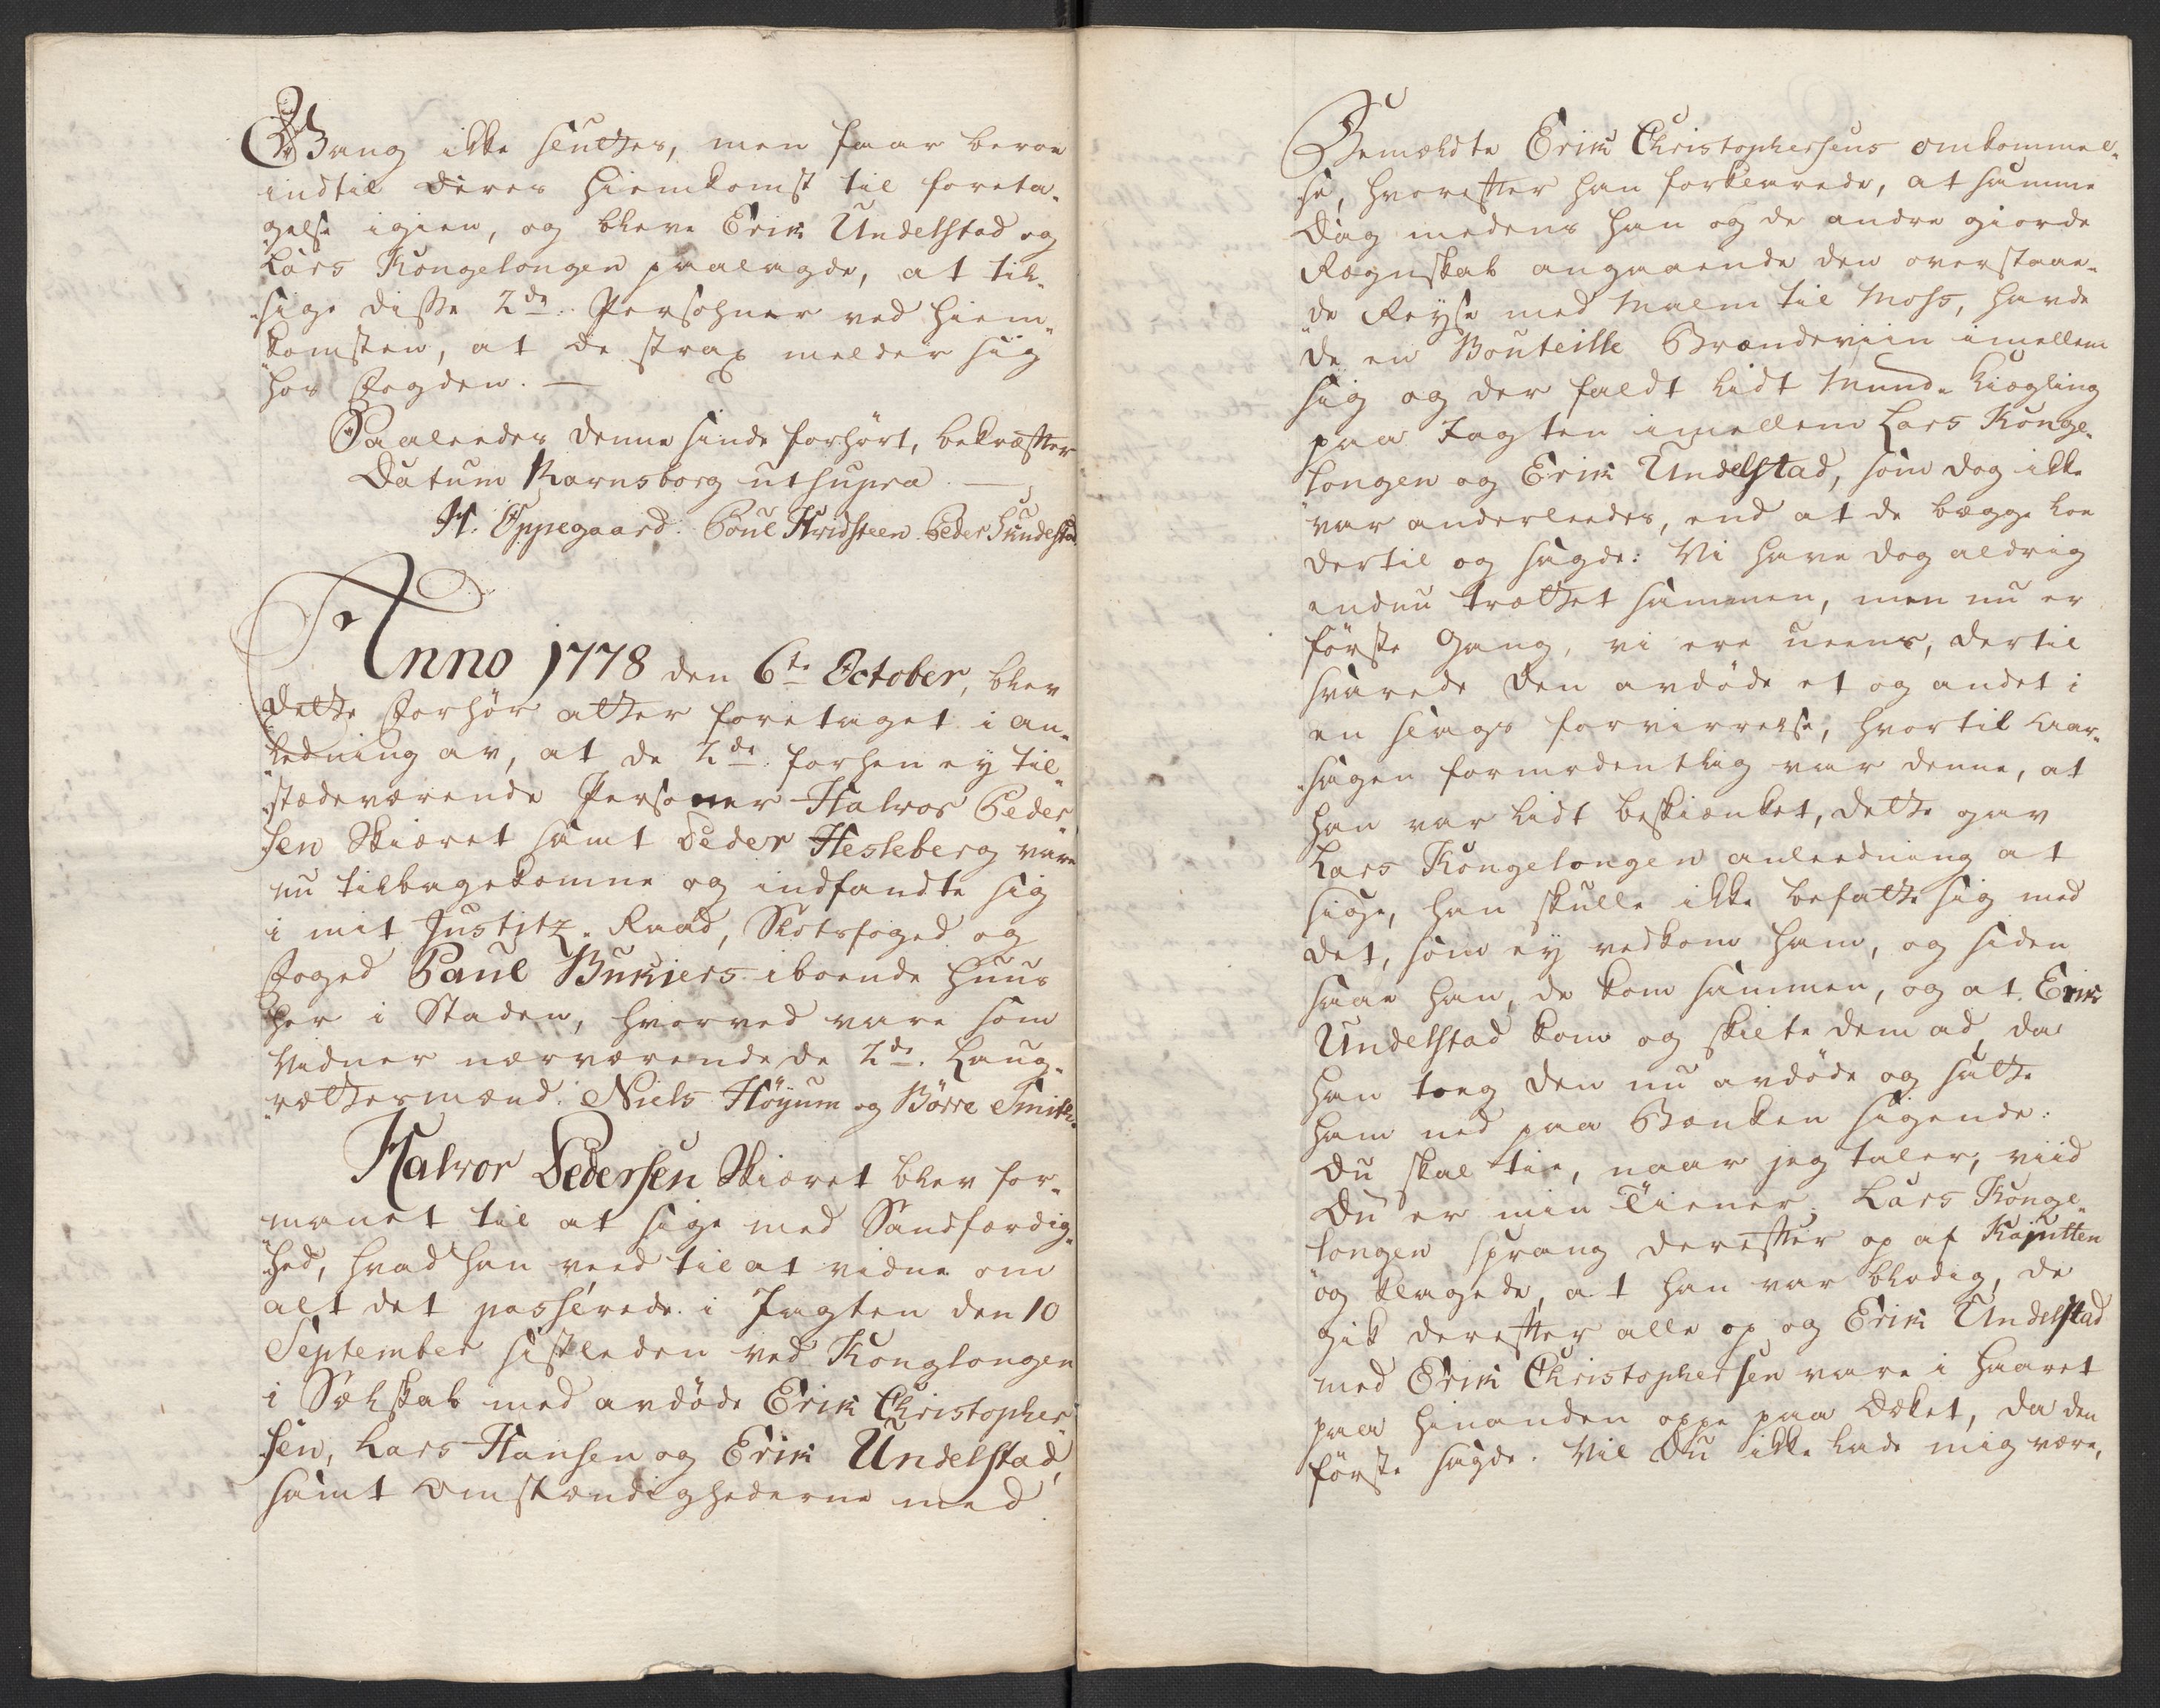 Gang ikke sluttes, men faar beroe
indtil deres Hiemkomst til foreta-
gelse igien, og bleve Erik Undelstad og
Lars Kongelongen paalagde, at til-
sige disse 2de Personer ved Hiem-
komsten, at de strax melder sig
hos Fogden. —
Saaledes denne sinde forhört, bekræfter
Datum Ravnsborg ut supra. —
H. Oppegaard. Poul Hvidsteen. Peder Sundestad
Anno 1778 den 6te October, blev
dette Forhör atter foretaget i an-
ledning av, at de 2de forhen ey til-
stædeværende Personer Halvor Peder-
sen Skiæret samt Peder Hesleberg vare
nu tilbagekomne og indfandte sig
i mit Justitz-Raad, Slotsfoged og
Foged Paul Bukiers iboende Huus
her i Staden, hvorved vare som
Vidner nærværende de 2de Laug-
rættesmænd: Niels Höyum og Börre Smith.
Halvor Pedersen Skiæret blev for-
manet til at sige med Sandfærdig-
hed, hvad han veed til at vidne om
alt det passérede i Jagten den 10
September sistleden ved Konglongen
i Selskab med avdöde Erik Christopher-
sen, Lars Hansen og Erik Undelstad,
samt Omstændighederne med
Bemældte Erik Christophersens omkommel-
se, hvorefter han forklarede, at samme
Dag medens han og de andre giorde
Regnskab angaaende den overstaae-
de Reyse med Malm til Moss, havde
de en Bouteille Brændeviin imellem
sig og der faldt lidt Mund-Kiegling
paa Jagten imellem Lars Konge-
longen og Erik Undelstad, som dog ikke
var anderleedes, end at de begge loe
dertil og sagde: Vi have dog aldrig
endnu trættet sammen, men nu er
förste Gang, vi ere ueens, dertil
svarede den avdöde et og andet i
en slags forvirrelse, hvortil Aar-
sagen formodentlig var denne, at
han var lidt beskiænket, dette gav
Lars Kongelongen anleedning at
sige, han skulle ikke befatte sig med
det, som ey vedkom ham, og siden
saae han, de kom sammen, og at Erik
Undelstad kom og skilte dem ad, da
han toeg den nu avdöde og satte
ham ned paa Bænken sigende:
Du skal tie, naar jeg taler, viid
Du er min Tiener. Lars Konge-
longen sprang derefter op af Kajutten
og klagede, at han var blodig, de
gik derefter alle op og Erik Undelstad
med Erik Christophersen vare i Haaret
paa hinanden oppe paa Dæket, da den
förste sagde: Vil Du ikke lade mig være,